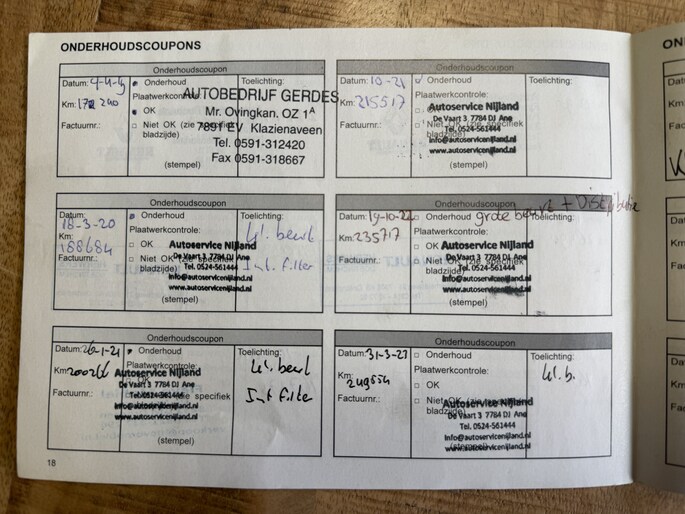 ONDERHOUDSCOUPONS
Onderhoudscoupon
Datum: 4-4-19
Km: 172 240
Factuurnr.:
Onderhoud
Plaatwerkcontrole:
OK
Niet OK (zie specifiek
bladzijde)
(stempel)
Toelichting:
AUTOBEDRIJF GERDES
Mr. Ovingkan. OZ 1A
7891 EV Klazienaveen
Tel. 0591-312420
Fax 0591-318667
Onderhoudscoupon
Datum: 10-21
Km: 215517
Factuurnr.:
Onderhoud
Plaatwerkcontrole:
OK
Niet OK (zie specifiek
bladzijde)
(stempel)
Toelichting:
Autoservice Nijland
De Vaart 3 7784 DJ Ane
Tel. 0524-561444
info@autoservicenijland.nl
www.autoservicenijland.nl
Onderhoudscoupon
Datum: 18-3-20
Km: 188684
Factuurnr.:
Onderhoud
Plaatwerkcontrole:
OK
Niet OK (zie specifiek
bladzijde)
(stempel)
Toelichting:
kl. beurt
Int. filter
Autoservice Nijland
De Vaart 3 7784 DJ Ane
Tel. 0524-561444
info@autoservicenijland.nl
www.autoservicenijland.nl
Onderhoudscoupon
Datum: 19-10-22
Km: 235717
Factuurnr.:
Onderhoud
grote beurt + Distributie
Plaatwerkcontrole:
OK
Niet OK (zie specifiek
bladzijde)
(stempel)
Autoservice Nijland
De Vaart 3 7784 DJ Ane
Tel. 0524-561444
info@autoservicenijland.nl
www.autoservicenijland.nl
Onderhoudscoupon
Datum: 26-1-21
Km:
Factuurnr.:
Onderhoud
Plaatwerkcontrole:
(zie specifiek
(stempel)
Toelichting:
kl. beurt
Int filter
Autoservice Nijland
De Vaart 3 7784 DJ Ane
Tel. 0524-561444
info@autoservicenijland.nl
www.autoservicenijland.nl
Onderhoudscoupon
Datum: 31-3-23
Km: 249554
Factuurnr.:
Onderhoud
Plaatwerkcontrole:
OK
Niet OK (zie specifiek
bladzijde)
(stempel)
Toelichting:
kl. b.
Autoservice Nijland
De Vaart 3 7784 DJ Ane
Tel. 0524-561444
info@autoservicenijland.nl
www.autoservicenijland.nl
18